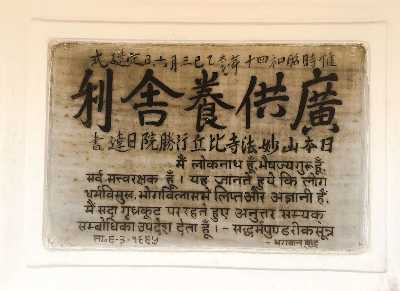 惟時昭和四十年乙巳三月六日定礎式
廣供養舍利
日本山妙法寺比丘行勝院日達書
मैं लोकनाथ हूँ, भैषज्यगुरू हूँ,
सर्व-सत्त्वरक्षक हूँ। यह जानते हुये कि लोग
धर्मविमुख, भोगविलासमें लिप्त और अज्ञानी हैं,
मैं सदा गृध्रकूट पर रहते हुए अनुत्तर सम्यक्
सम्बोधिका उपदेश देता हूँ। - सद्धर्मपुण्डरीक सूत्र
ता॰ ६-३-१९६५ - भगवान बुद्ध